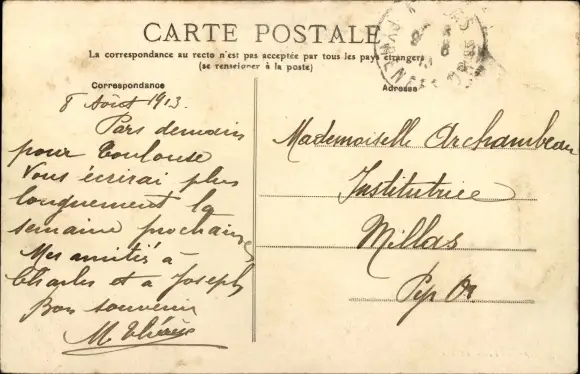 CARTE POSTALE
La correspondance au recto n'est pas acceptée par tous les pays étrangers
(se renseigner à la poste)
Correspondance
Adresse
8 Août 1913.
Pars demain
pour Toulouse
Vous écrirai plus
longuement la
semaine prochaine
Mes amitiés à
Charles et a Joseph
Bon souvenir
M
Mademoiselle Archambeau
Institutrice
Millas
Pyr Or
PYRENEES